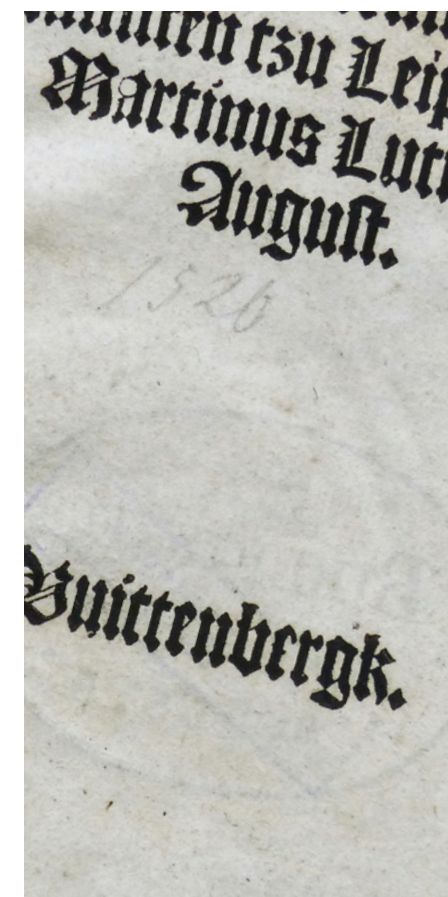 tzu Leip
Martinus Lut
August.
1520
Vuittenbergk.